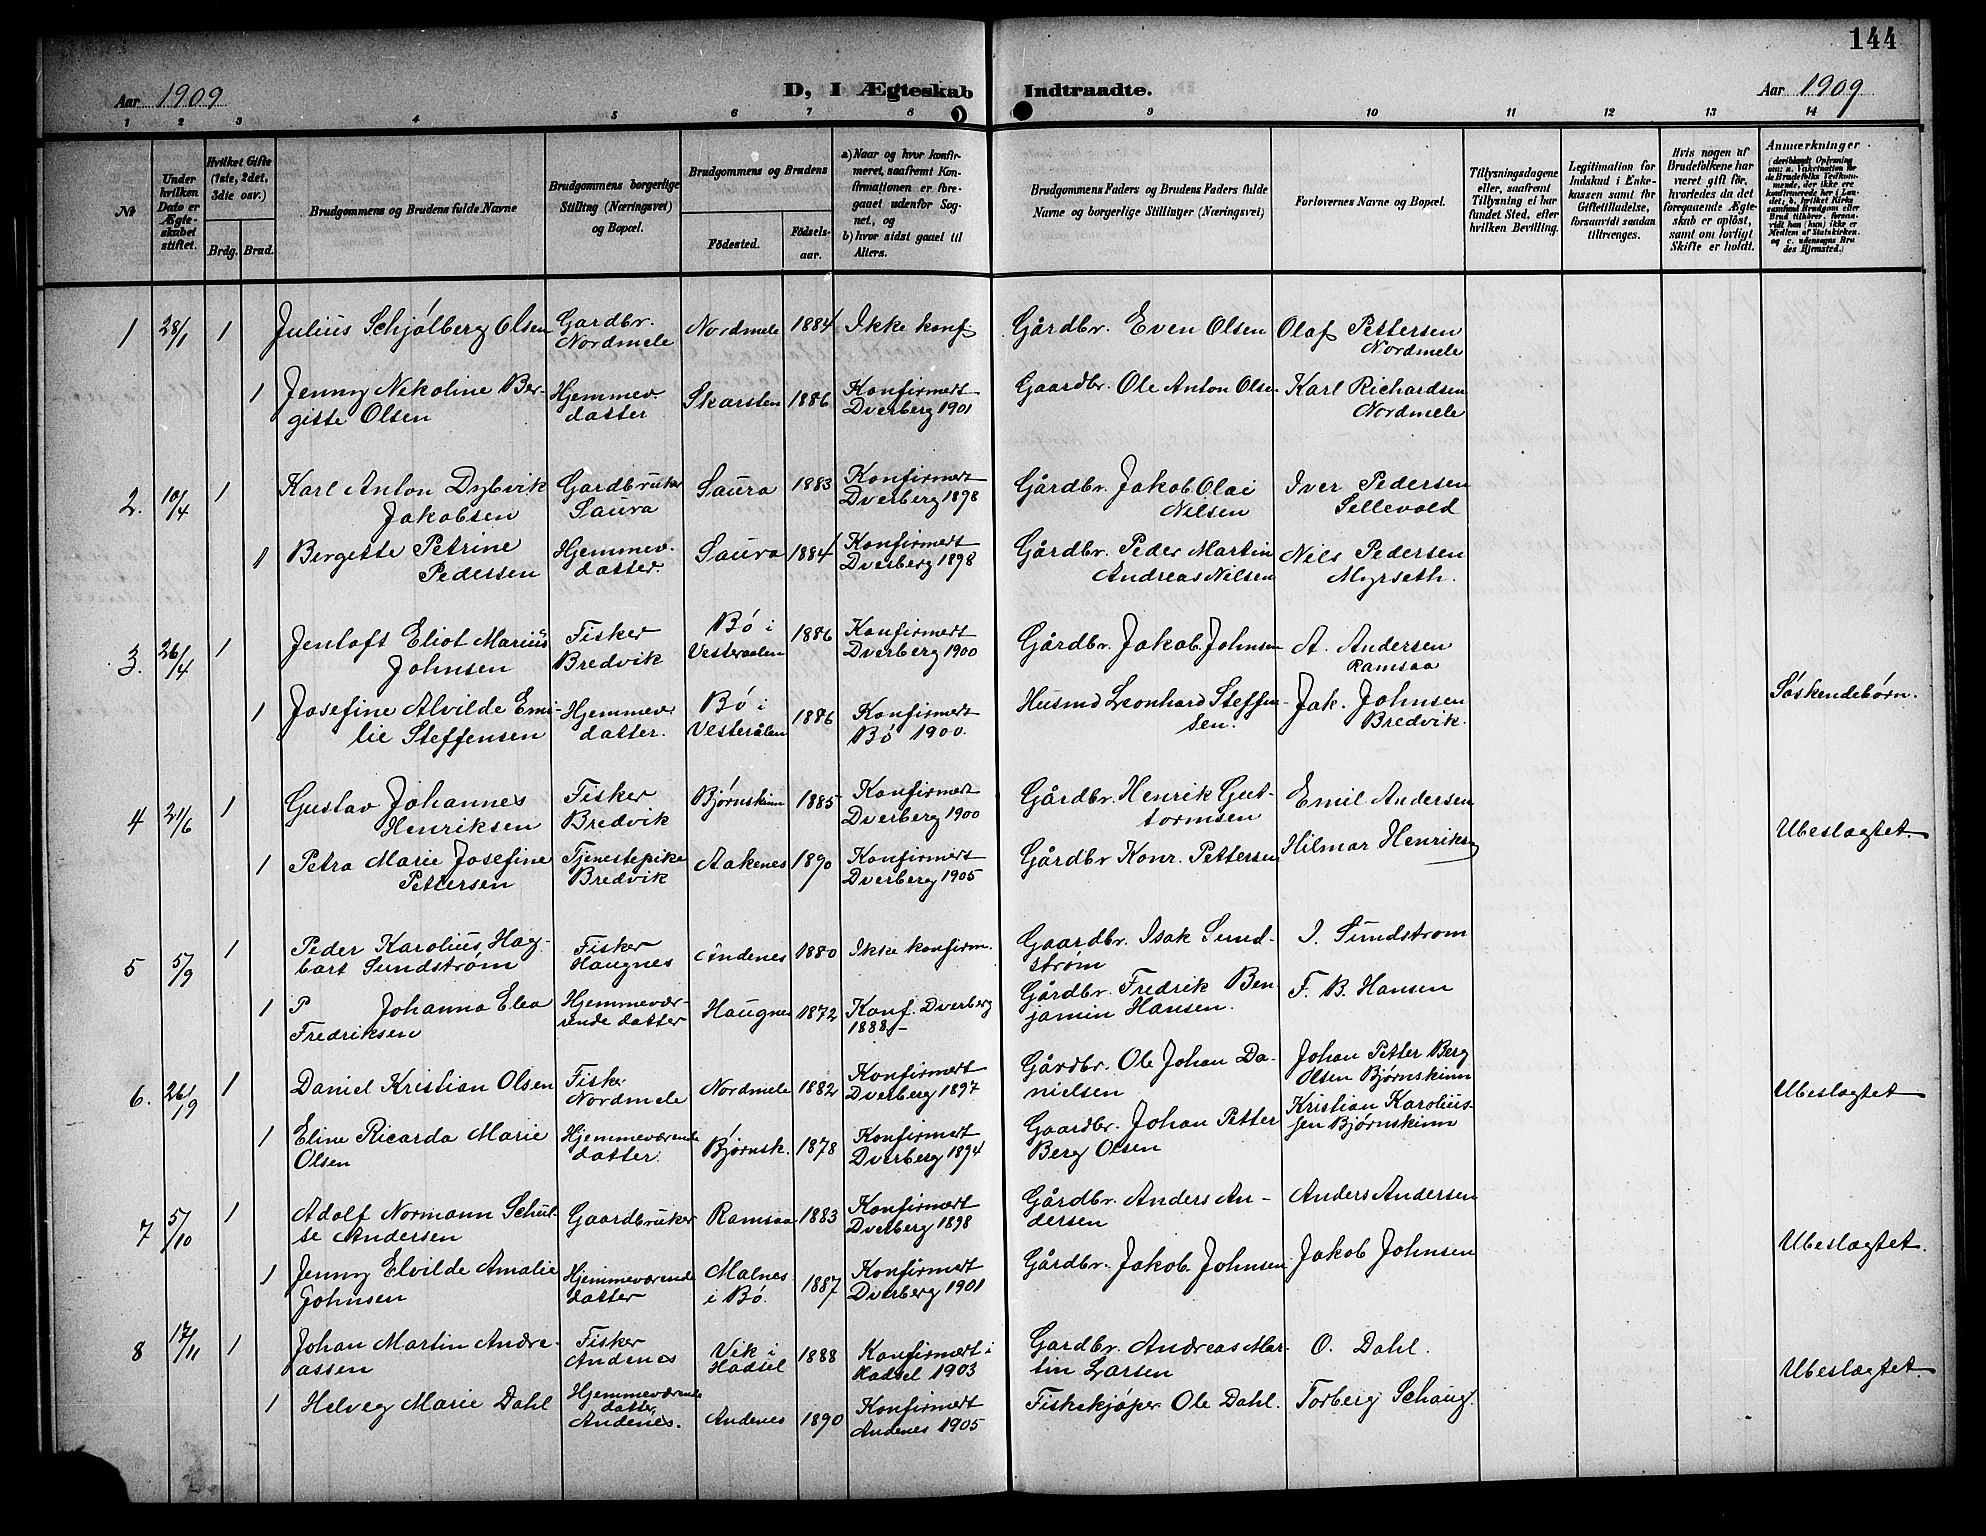 144
Aar 1909
D, I Ægteskab Indtraadte.
Aar 1909
1 2 3 4 5 6 7 8 9 10 11 12 13 14
№
Under hvilken Dato er Ægteskabet stiftet.
Hvilket Gifte (1ste, 2det, 3die osv.)
Brdg. Brud.
Brudgommens og Brudens fulde Navne
Brudgommens borgerlige Stilling (Næringsvei) og Bopæl.
Brudgommens og Brudens
Fødested.
Fødselsaar.
a) Naar og hvor konfirmeret, saafremt Konfirmationen er foregaaet udenfor Sognet, og
b) hvor sidst gaaet til Alters.
Brudgommens Faders og Brudens Faders fulde Navne og borgerlige Stillinger (Næringsvei)
Forlovernes Navne og Bopæl.
Tillysningsdagene eller, saafremt Tillysning ei har fundet Sted, efter hvilken Bevilling.
Legitimation for Indskud i Enkekassen samt for Giftetilladelse, forsaavidt saadan tiltrænges.
Hvis nogen af Brudefolkene har været gift før, hvorledes da det foregaaende Ægteskab er opløst, samt om lovligt Skifte er holdt.
Anmærkninger
1 28/1 1 Julius Schjølberg Olsen Gardbr. Nordmele Nordmele 1884 Ikke konf. Gårdbr. Even Olsen Olaf Pettersen Nordmele
1 Jenny Nikoline Bergitte Olsen Hjemmev datter Skarsten 1886 Konfirmert Dverberg 1901 Gaardbr. Ole Anton Olsen Karl Richardsen Nordmele
2. 10/4 1 Karl Anton Dybvik Jakobsen Gardbruker Saura Saura 1883 Konfirmert Dverberg 1898 Gårdbr. Jakob Olai Nilsen Iver Pedersen Sellevold
1 Bergitte Petrine Pedersen Hjemmev. datter. Saura 1884 Konfirmert Dverberg 1898 Gårdbr. Peder Martin Andreas Nilsen Nils Pedersen Myrseth.
3. 26/4 1 Jentoft Eliot Marius Johnsen Fisker Bredvik Bø i Vesteraalen 1886 Konfirmert Dverberg 1900 Gårdbr. Jakob Johnsen A. Andersen Ramsaa
1 Josefine Alvilde Emilie Steffensen Hjemmev datter. Bø i Vesterålen 1886 Konfirmert Bø 1900. Husmd Leonhard Steffensen. Jak. Johnsen Bredvik. Søskendebørn.
4 21/6 1 Gustav Johannes Henriksen Fisker Bredvik Bjørnskinn 1885 Konfirmert Dverberg 1900 Gårdbr. Henrik Guttormsen Emil Andersen Ubeslægtet.
1 Petra Marie Josefine Pettersen Tjenestepike Bredvik Aakenes 1890 Konfirmert Dverberg 1905 Gårdbr Konr. Pettersen Hilmar Henriks
5 5/9 1 Peder Karolius Hagbart Sundstrøm Fisker Haugnes Andenes 1880 Ikke konfirm. Gaardbr. Isak Sundstrøm I. Sundstrøm
1 P Johanna Elea Fredriksen Hjemmeværende datter Haugnes 1872 Konf. Dverberg 1888 Gårdbr. Fredrik Benjamin Hansen. F. B. Hansen
6. 26/9 1 Daniel Kristian Olsen Fisker Nordmele Nordmele 1882 Konfirmert Dverberg 1897 Gårdbr. Ole Johan Danielsen Johan Petter Berg Olsen Bjørnskinn Ubeslægtet
1 Eline Ricarda Marie Olsen Hjemmeværende datter. Bjørnsk. 1878 Konfirmert Dverberg 1894 Gaardbr. Johan Petter Berg Olsen Kristian Karoliussen Bjørnskinn
7 5/10 1 Adolf Normann Schulse Andersen Gaardbruker Ramsaa 1883 Konfirmert Dverberg 1898 Gårdbr. Anders Andersen Anders Andersen Ubeslægtet.
1 Jenny Elvilde Amalie Johnsen Hjemmeværende datter Malnes i Bø. 1887 Konfirmert Dverberg 1901 Gårdbr. Jakob Johnsen Jakob Johnsen
8 17/11 1 Johan Martin Andreassen Fisker Andenes Vik i Hadsel 1888 Konfirmert i Hadsel 1903 Gardbr. Andreas Martin Larsen O. Dahl. Ubeslægtet.
1 Helveg Marie Dahl Hjemmeværende datter, Andenes. Andenes 1890 Konfirmert Andenes 1905 Fiskekjøper Ole Dahl. Torberg Schaug.